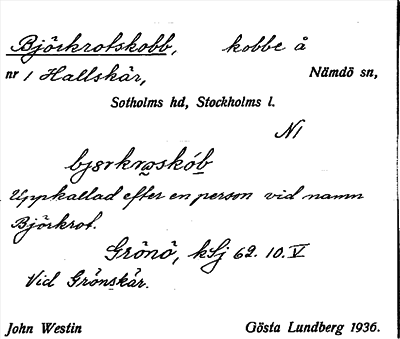 Björkrotskobb, kobbe å
nr 1 Hallskär, Nämdö sn,
Sotholms hd, Stockholms l.
N1
Uppkallad efter en person vid namn
Björkrot.
Grönö, kSj 62. 10. V
Vid Grönskär.
John Westin Gösta Lundberg 1936.